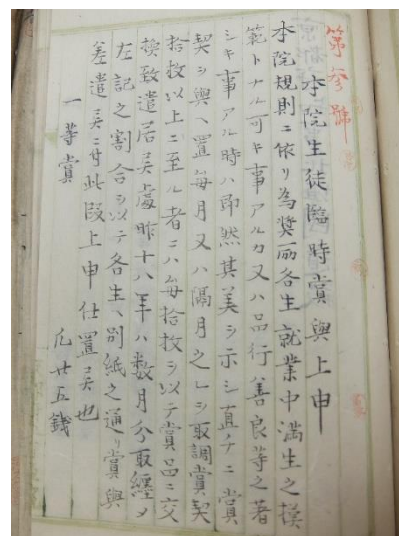 第参號
本院生徒臨時賞與上申
本院規則ニ依リ為奨励各生就業中満生之模
範トナル可キ事アルカ又ハ品行善良等之著
シキ事アル時ハ即然其美ヲ示シ直チニ賞
契ヲ與ヘ置毎月又ハ隔月之レヲ取調賞契
拾枚以上ニ至ル者ニハ毎拾枚ヲ以テ賞品ニ交
換致遣居候處昨十八年ハ数月分取經メ
左記之割合ヲ以テ各生ヘ別紙之通リ賞與
差遣候ニ付此段上申仕置候也
一等賞
凡廿五銭